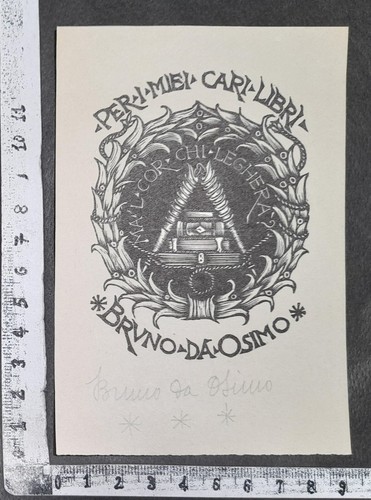 PER·I·MIEI·CARI·LIBRI
MA·'L·COR·CHI·LEGHERÀ?
9
*BRVNO·DA·OSIMO*
Bruno da Osimo
* * *
1 2 3 4 5 6 7 8 9 10 11
0 1 2 3 4 5 6 7 8 9